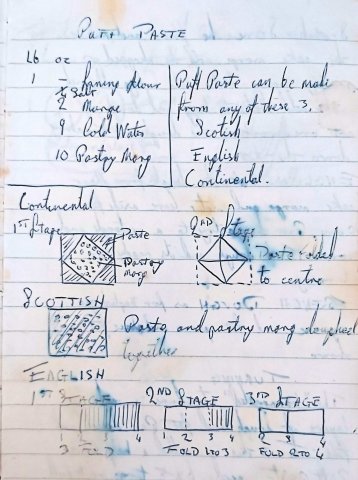 PUFF PASTE
Lb oz
1 - Flour
¼ Salt
2 Marge
9 Cold Water
10 Pastry Marg
Puff Paste can be made
from any of these 3.
Scotish
English
Continental.
Continental
1ST Stage
Paste
Pastry
marg
2ND Stage
Paste folded
to centre
SCOTTISH
Paste and pastry marg
together
ENGLISH
1ST STAGE
1 2 3 4
3 FOLD
2ND STAGE
1 2 3 4
FOLD 1 TO 3
3RD STAGE
2 3 4
FOLD 2 TO 4